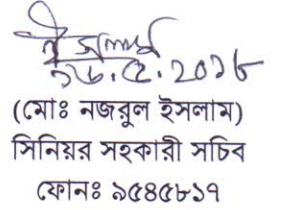 ১৬.৫.২০১৮
(মোঃ নজরুল ইসলাম)
সিনিয়র সহকারী সচিব
ফোনঃ ৯৫৪৫৮১৭